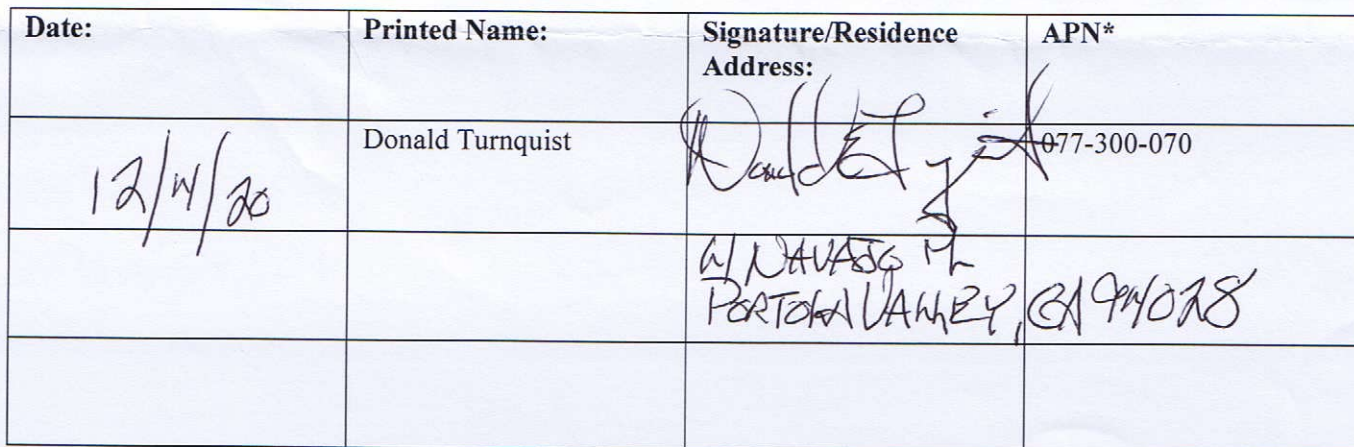 Date: Printed Name: Signature/Residence Address: APN*
12/4/20 Donald Turnquist 077-300-070
NAVAJO PL
PORTOLA VALLEY, CA 94028